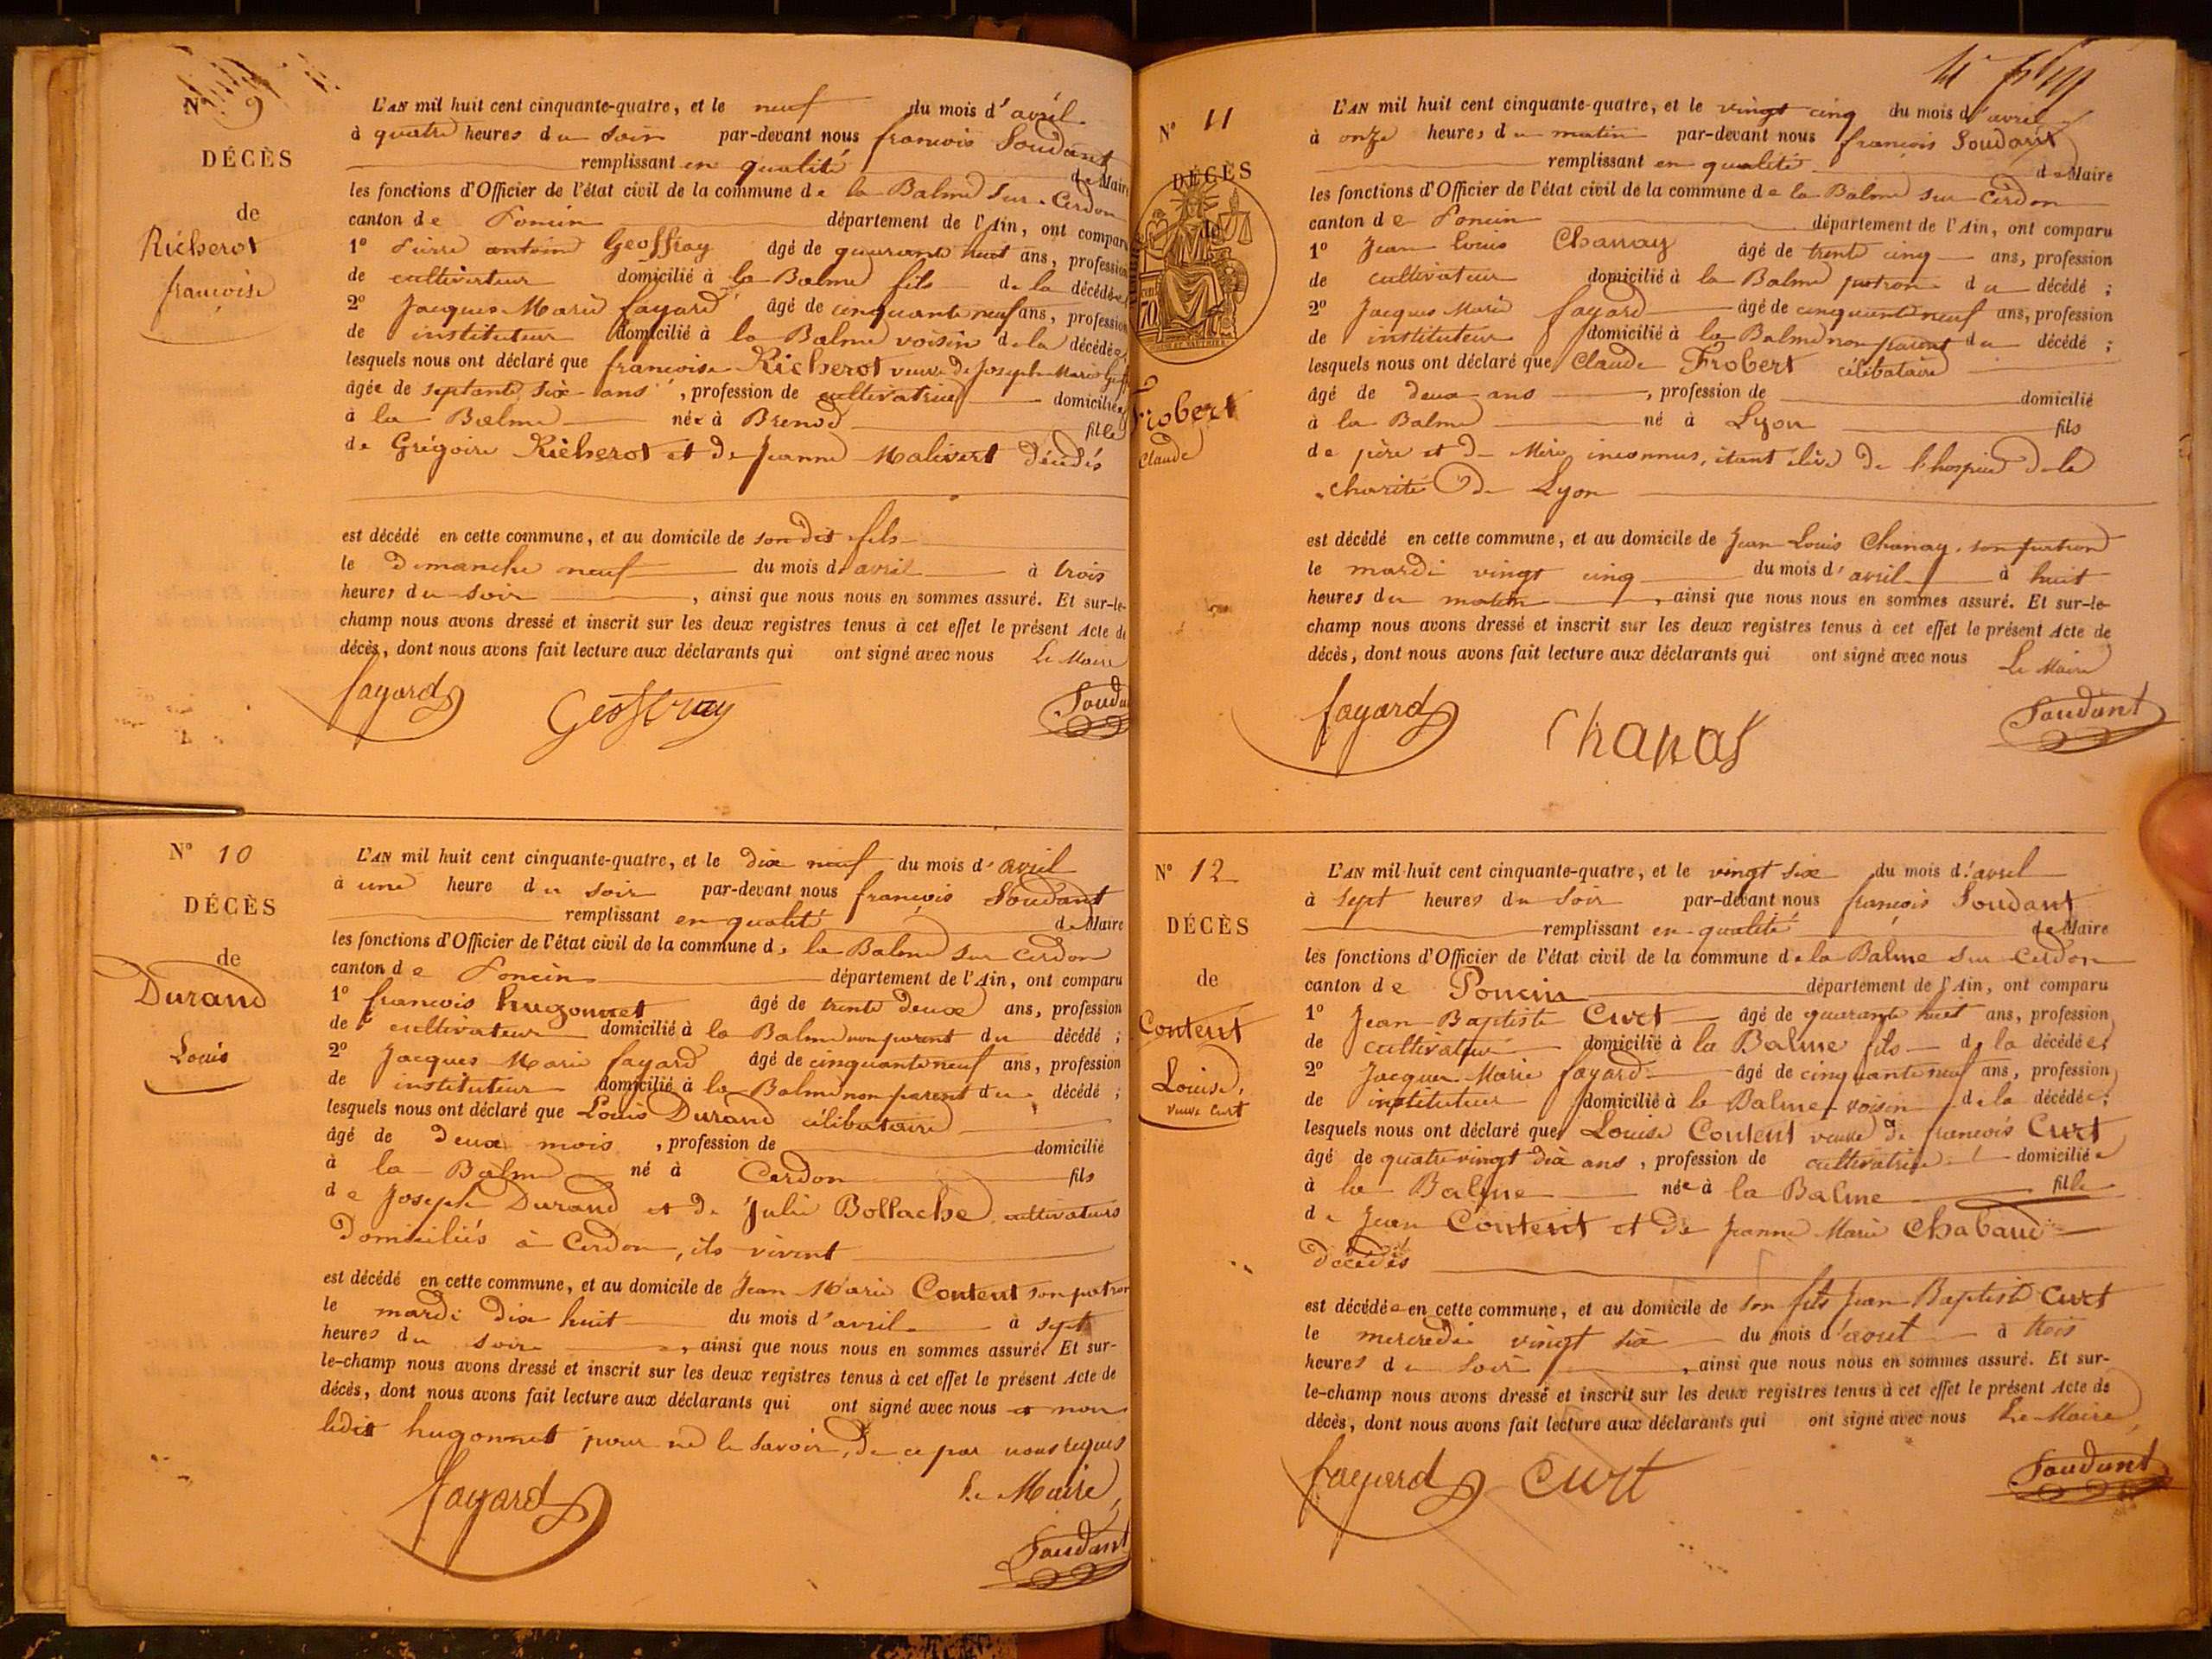 N° 9
DÉCÈS
de
Richerot
françoise
L'AN mil huit cent cinquante-quatre, et le neuf du mois d'avril
à quatre heures du soir par-devant nous françois Soudant
remplissant en qualité de Maire
les fonctions d'Officier de l'état civil de la commune de la Balme sur Cerdon
canton de Poncin département de l'Ain, ont comparu
1° Pierre antoine Geoffray âgé de quarante huit ans, profession
de cultivateur domicilié à la Balme fils de la décédée
2° Jacques Marie fayard âgé de cinquante neuf ans, profession
de instituteur domicilié à la Balme voisin de la décédée
lesquels nous ont déclaré que françoise Richerot veuve de Joseph Marie
âgée de septante six ans, profession de cultivatrice domiciliée
à la Balme née à Brenod fille
de Grégoire Richerot et de Jeanne Malivert décédés
est décédé en cette commune, et au domicile de son dit fils
le dimanche neuf du mois d'avril à trois
heures du soir, ainsi que nous nous en sommes assuré. Et sur-le-
champ nous avons dressé et inscrit sur les deux registres tenus à cet effet le présent Acte de
décès, dont nous avons fait lecture aux déclarants qui ont signé avec nous Le Maire
fayard Geoffray Soudant
N° 10
DÉCÈS
de
Durand
Louis
L'AN mil huit cent cinquante-quatre, et le dix neuf du mois d'avril
à une heure du soir par-devant nous françois Soudant
remplissant en qualité de Maire
les fonctions d'Officier de l'état civil de la commune de la Balme sur Cerdon
canton de Poncin département de l'Ain, ont comparu
1° françois hugonnet âgé de trente deux ans, profession
de cultivateur domicilié à la Balme non parent du décédé ;
2° Jacques Marie fayard âgé de cinquante neuf ans, profession
de instituteur domicilié à la Balme non parent du décédé ;
lesquels nous ont déclaré que Louis Durand célibataire
âgé de deux mois, profession de domicilié
à la Balme né à Cerdon fils
de Joseph Durand et de Julie Bollache cultivateurs
Domiciliés à Cerdon, ils vivent
est décédé en cette commune, et au domicile de Jean Marie Content son patron
le mardi dix huit du mois d'avril à sept
heures du soir, ainsi que nous nous en sommes assuré. Et sur-
le-champ nous avons dressé et inscrit sur les deux registres tenus à cet effet le présent Acte de
décès, dont nous avons fait lecture aux déclarants qui ont signé avec nous et non
ledit hugonnet pour ne le savoir, de ce par nous requis
Le Maire,
fayard
Soudant
N° 11
DÉCÈS
de
70
Frobert
Claude
L'AN mil huit cent cinquante-quatre, et le vingt cinq du mois d'avril
à onze heures du matin par-devant nous françois Soudant
remplissant en qualité de Maire
les fonctions d'Officier de l'état civil de la commune de la Balme sur Cerdon
canton de Poncin département de l'Ain, ont comparu
1° Jean Louis Chanay âgé de trente cinq ans, profession
de cultivateur domicilié à la Balme patron du décédé ;
2° Jacques Marie fayard âgé de cinquante neuf ans, profession
de instituteur domicilié à la Balme non parent du décédé ;
lesquels nous ont déclaré que Claude Frobert célibataire
âgé de deux ans, profession de domicilié
à la Balme né à Lyon fils
de père et de Mère inconnus, étant élève de l'hospice de la
charité de Lyon
est décédé en cette commune, et au domicile de Jean Louis Chanay son patron
le mardi vingt cinq du mois d'avril à huit
heures du matin, ainsi que nous nous en sommes assuré. Et sur-le-
champ nous avons dressé et inscrit sur les deux registres tenus à cet effet le présent Acte de
décès, dont nous avons fait lecture aux déclarants qui ont signé avec nous Le Maire
fayard Chanay Soudant
N° 12
DÉCÈS
de
Content
Louise,
veuve Curt
L'AN mil huit cent cinquante-quatre, et le vingt six du mois d'avril
à sept heures du soir par-devant nous françois Soudant
remplissant en qualité de Maire
les fonctions d'Officier de l'état civil de la commune de la Balme sur Cerdon
canton de Poncin département de l'Ain, ont comparu
1° Jean Baptiste Curt âgé de quarante huit ans, profession
de cultivateur domicilié à la Balme fils de la décédée ;
2° Jacques Marie fayard âgé de cinquante neuf ans, profession
de instituteur domicilié à la Balme voisin de la décédée ;
lesquels nous ont déclaré que Louise Content veuve de françois Curt
âgé de quatre vingt dix ans, profession de cultivatrice domiciliée
à la Balme née à la Balme fille
de Jean Content et de Jeanne Marie Chabaud
décédés
est décédée en cette commune, et au domicile de son fils Jean Baptiste Curt
le mercredi vingt six du mois d'aout à trois
heures du soir, ainsi que nous nous en sommes assuré. Et sur-
le-champ nous avons dressé et inscrit sur les deux registres tenus à cet effet le présent Acte de
décès, dont nous avons fait lecture aux déclarants qui ont signé avec nous Le Maire,
fayard Curt Soudant